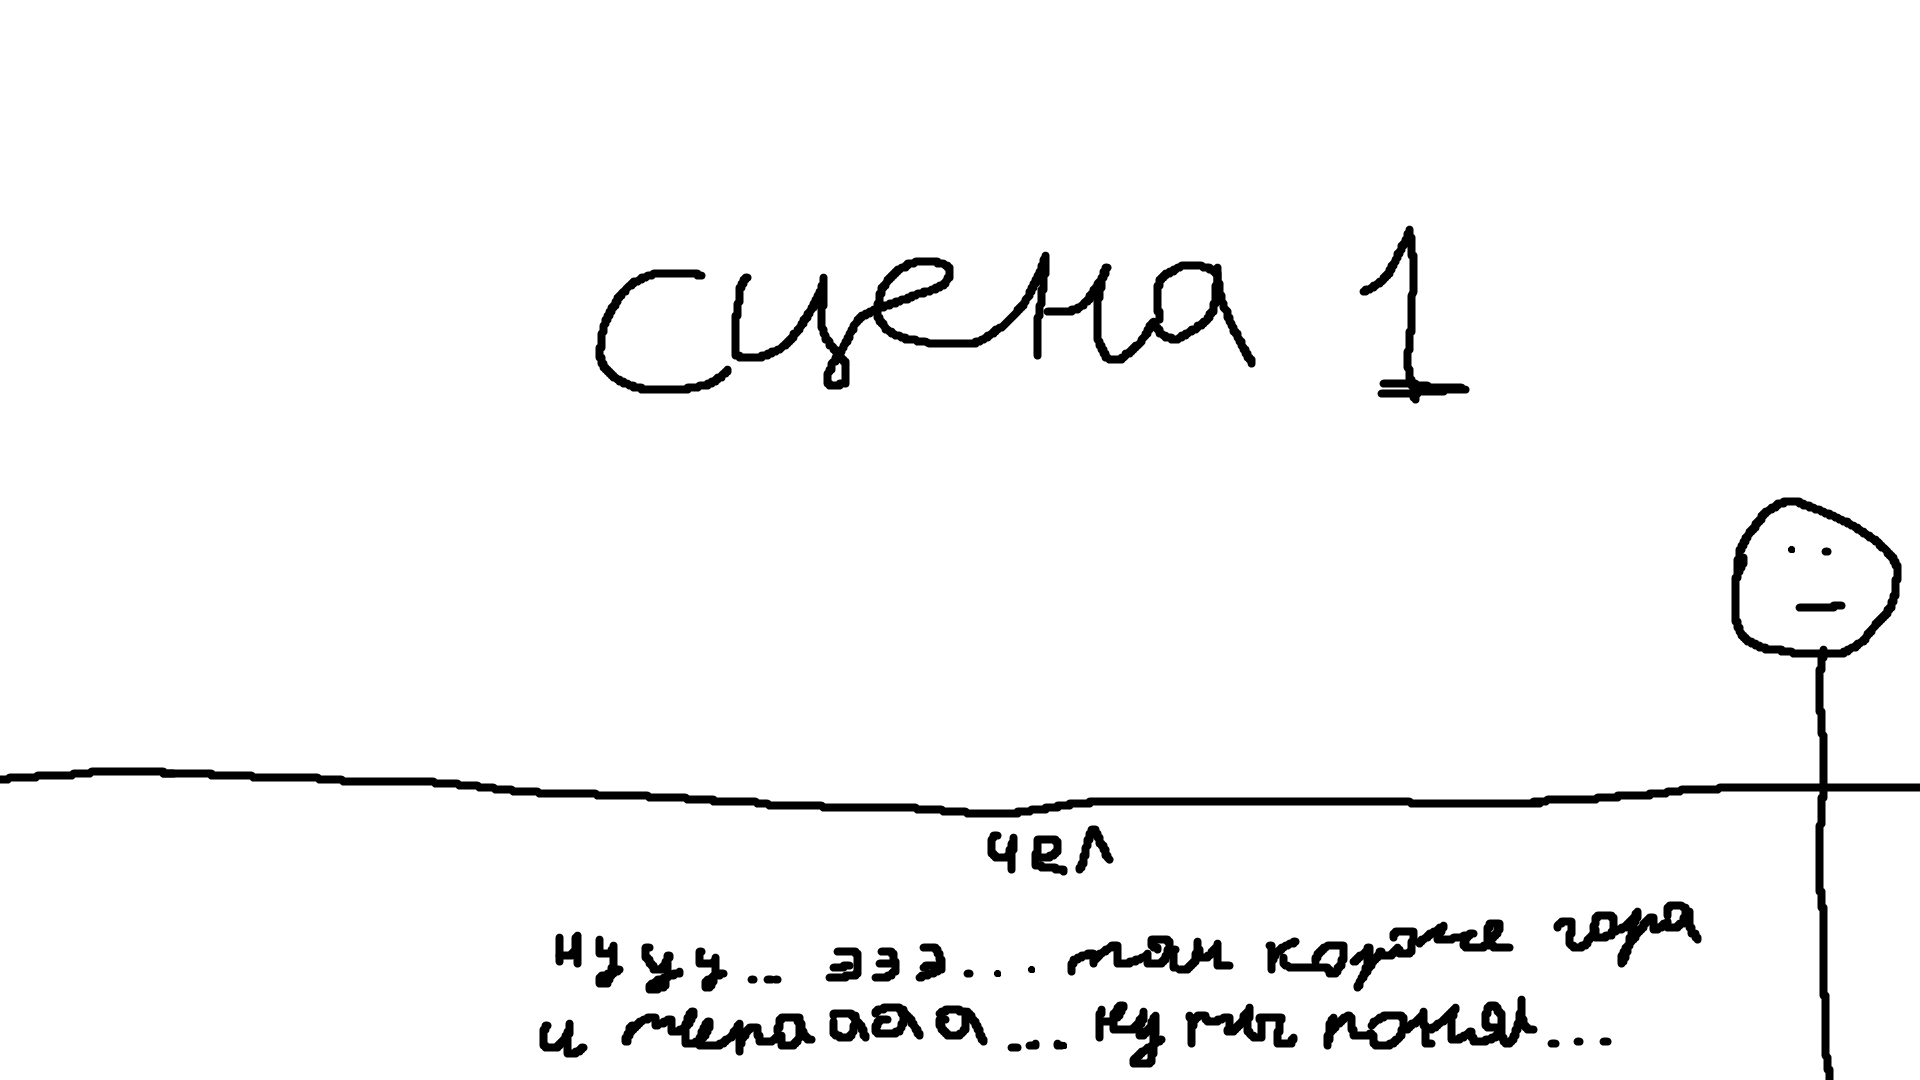 сцена 1
чел
нууу... эээ... там короче гора
и пещерааа... ну ты понял...